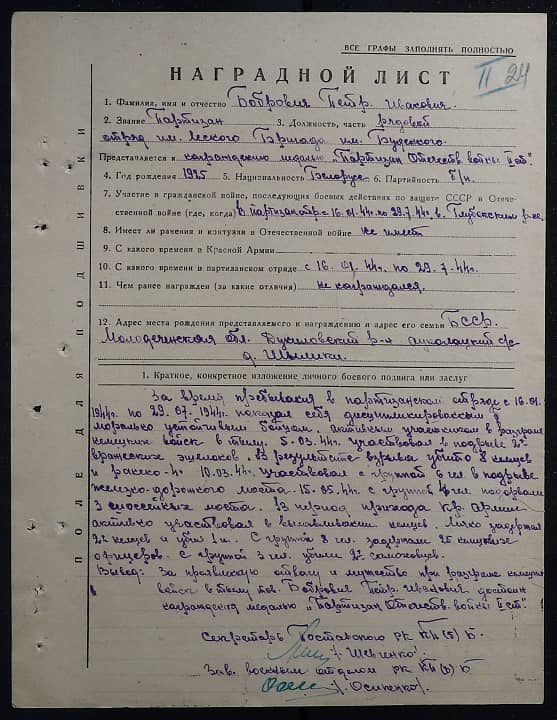 ВСЕ ГРАФЫ ЗАПОЛНЯТЬ ПОЛНОСТЬЮ
НАГРАДНОЙ ЛИСТ
II 24
1. Фамилия, имя и отчество Бобрович Петр Иванович.
2. Звание Партизан 3. Должность, часть рядовой
отряд им. Бригада им. Буденого.
Представляется к награждению медалью „Партизан Отечеств. войны II ст."
4. Год рождения 1925 5. Национальность Белорус 6. Партийность б/п.
7. Участие в гражданской войне, последующих боевых действиях по защите СССР и Отече-
ственной войне (где, когда) В партизанотр с 16.01.44г. по 29.7.44г. в. Глубокском р-не.
8. Имеет ли ранения и контузии в Отечественной войне не имеет
9. С какого времени в Красной Армии
10. С какого времени в партизанском отряде с 16.01.44г. по 29.7.44г.
11. Чем ранее награжден (за какие отличия) не награждался.
12. Адрес места рождения представляемого к награждению и адрес его семьи БССР.
Молодечинская обл. Дуниловский р-н с/с
д.
1. Краткое, конкретное изложение личного боевого подвига или заслуг
За время пребывания в партизанском отряде с 16.01.
1944г. по 29.07.1944г. показал себя дисциплинированным и
морально устойчивым бойцом, активным участником в разгроме
немецких войск в тылу. 5.03.44г. участвовал в подрыве 2х
вражеских эшелонов. В результате взрыва убито 8 немцев
и ранено-4. 10.03.44г. участвовал с группой 6 чел. в подрыве
железно-дорожного моста. 15.05.44г. с группой чел. подорвали
3 моста. В период прихода Кр. Армии
активно участвовал в вылавливании немцев. Лично задержал
2х немцев и убил 1н. С группой 8 чел. задержали 25 немцев
офицеров. С группой 3 чел. убили 2х
Вывод: За проявленную отвагу и мужество при разгроме немецких
войск в тылу тов. Бобрович Петр Иванович достоин
награждения медалью „Партизан Отечеств. войны II ст."
Секретарь Поставского РК КП(б)Б.
/Шевченко/.
Зав. военным отделом РК КП(б)Б
/Осипенко/.
ПОЛЕ ДЛЯ ПОДШИВКИ